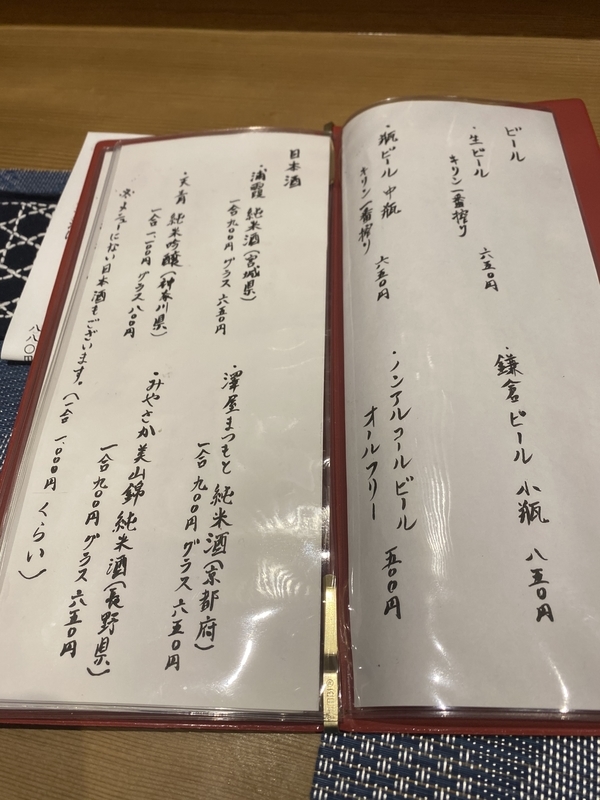 ビール
・生ビール
キリン一番搾り
六五〇円
・瓶ビール 中瓶
キリン一番搾り
六五〇円
・鎌倉ビール 小瓶 八五〇円
・ノンアルコールビール
オールフリー 五〇〇円
日本酒
・浦霞 純米酒(宮城県)
一合九〇〇円 グラス六五〇円
・天青 純米吟醸(神奈川県)
一合一、一〇〇円 グラス八〇〇円
・澤屋まつもと 純米酒(京都府)
一合九〇〇円 グラス六五〇円
・みやさか 美山錦 純米酒(長野県)
一合九〇〇円 グラス六五〇円
※メニューにない日本酒もございます。(一合 一、〇〇〇円くらい)
八八〇円